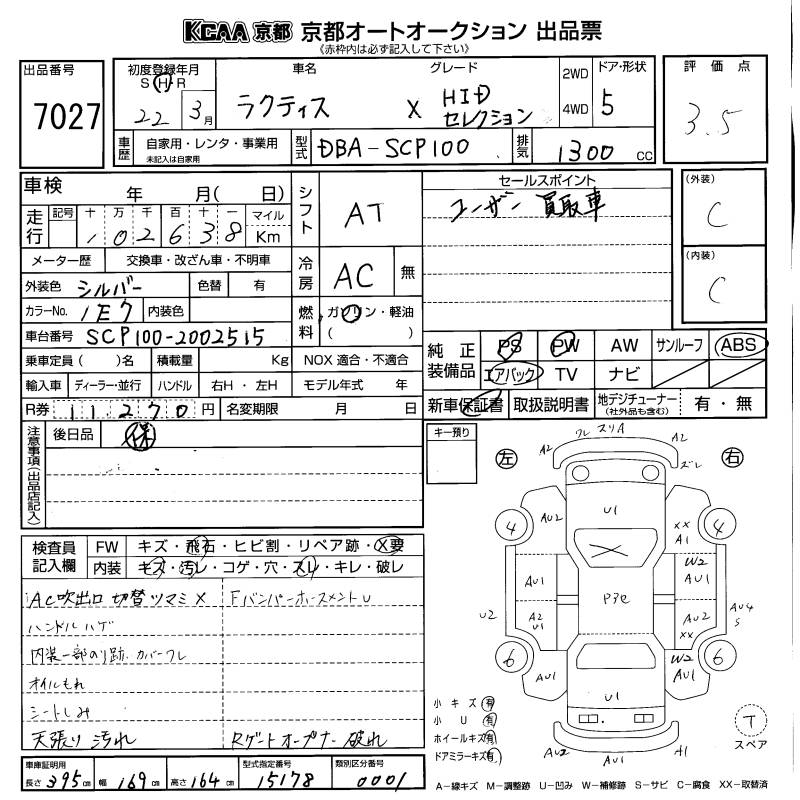 KCAA 京都 京都オートオークション 出品票
《赤枠内は必ず記入して下さい》
出品番号 7027
初度登録年月 S H R 22年 3月
車名 ラクティス
グレード X HID セレクション
2WD 4WD
ドア・形状 5
評価点 3.5
車歴 自家用・レンタ・事業用 未記入は自家用
型式 DBA-SCP100
排気 1300 CC
車検 年 月( 日)
シフト AT
セールスポイント
ユーザー買取車
(外装) C
走行 記号 十 万 千 百 十 一 マイル
102638 Km
メーター歴 交換車・改ざん車・不明車
冷房 AC 無
(内装) C
外装色 シルバー 色替 有
カラーNo. 1E7 内装色
燃料 ガソリン・軽油 ( )
車台番号 SCP100-2002515
純正装備品 PS PW AW サンルーフ ABS
エアバック TV ナビ
乗車定員( )名 積載量 Kg NOX 適合・不適合
輸入車 ディーラー・並行 ハンドル 右H・左H モデル年式 年
新車保証書 取扱説明書 地デジチューナー (社外品も含む) 有・無
R券 11270円 名変期限 月 日
注意事項(出品店記入)
後日品 保
キー預り
検査員記入欄
FW キズ・飛石・ヒビ割・リペア跡・X要
内装 キズ・汚レ・コゲ・穴・スレ・キレ・破レ
AC吹出口 切替ツマミ X
Fバンパーホースメント U
ハンドルハゲ
内装一部のり跡.カバーワレ
オイルもれ
シートしみ
天張り汚れ
Rゲートオープナー破れ
左 右
ワレ スリA
A2 A2
ズレ
4 4
AU2 U1 XX A1
W2 AU1
AU1
P3e
U2 A2 U1
AU2 XX
AU4 S
6 6
W2 AU1
AU1
U1
AU2 A1
小キズ 有
小U 有
ホイールキズ 有
ドアミラーキズ 有
T スペア
車庫証明用
長さ 395 cm 幅 169 cm 高さ 164 cm
型式指定番号 15178
類別区分番号 0001
A-線キズ M-調整跡 U-凹み W-補修跡 S-サビ C-腐食 XX-取替済